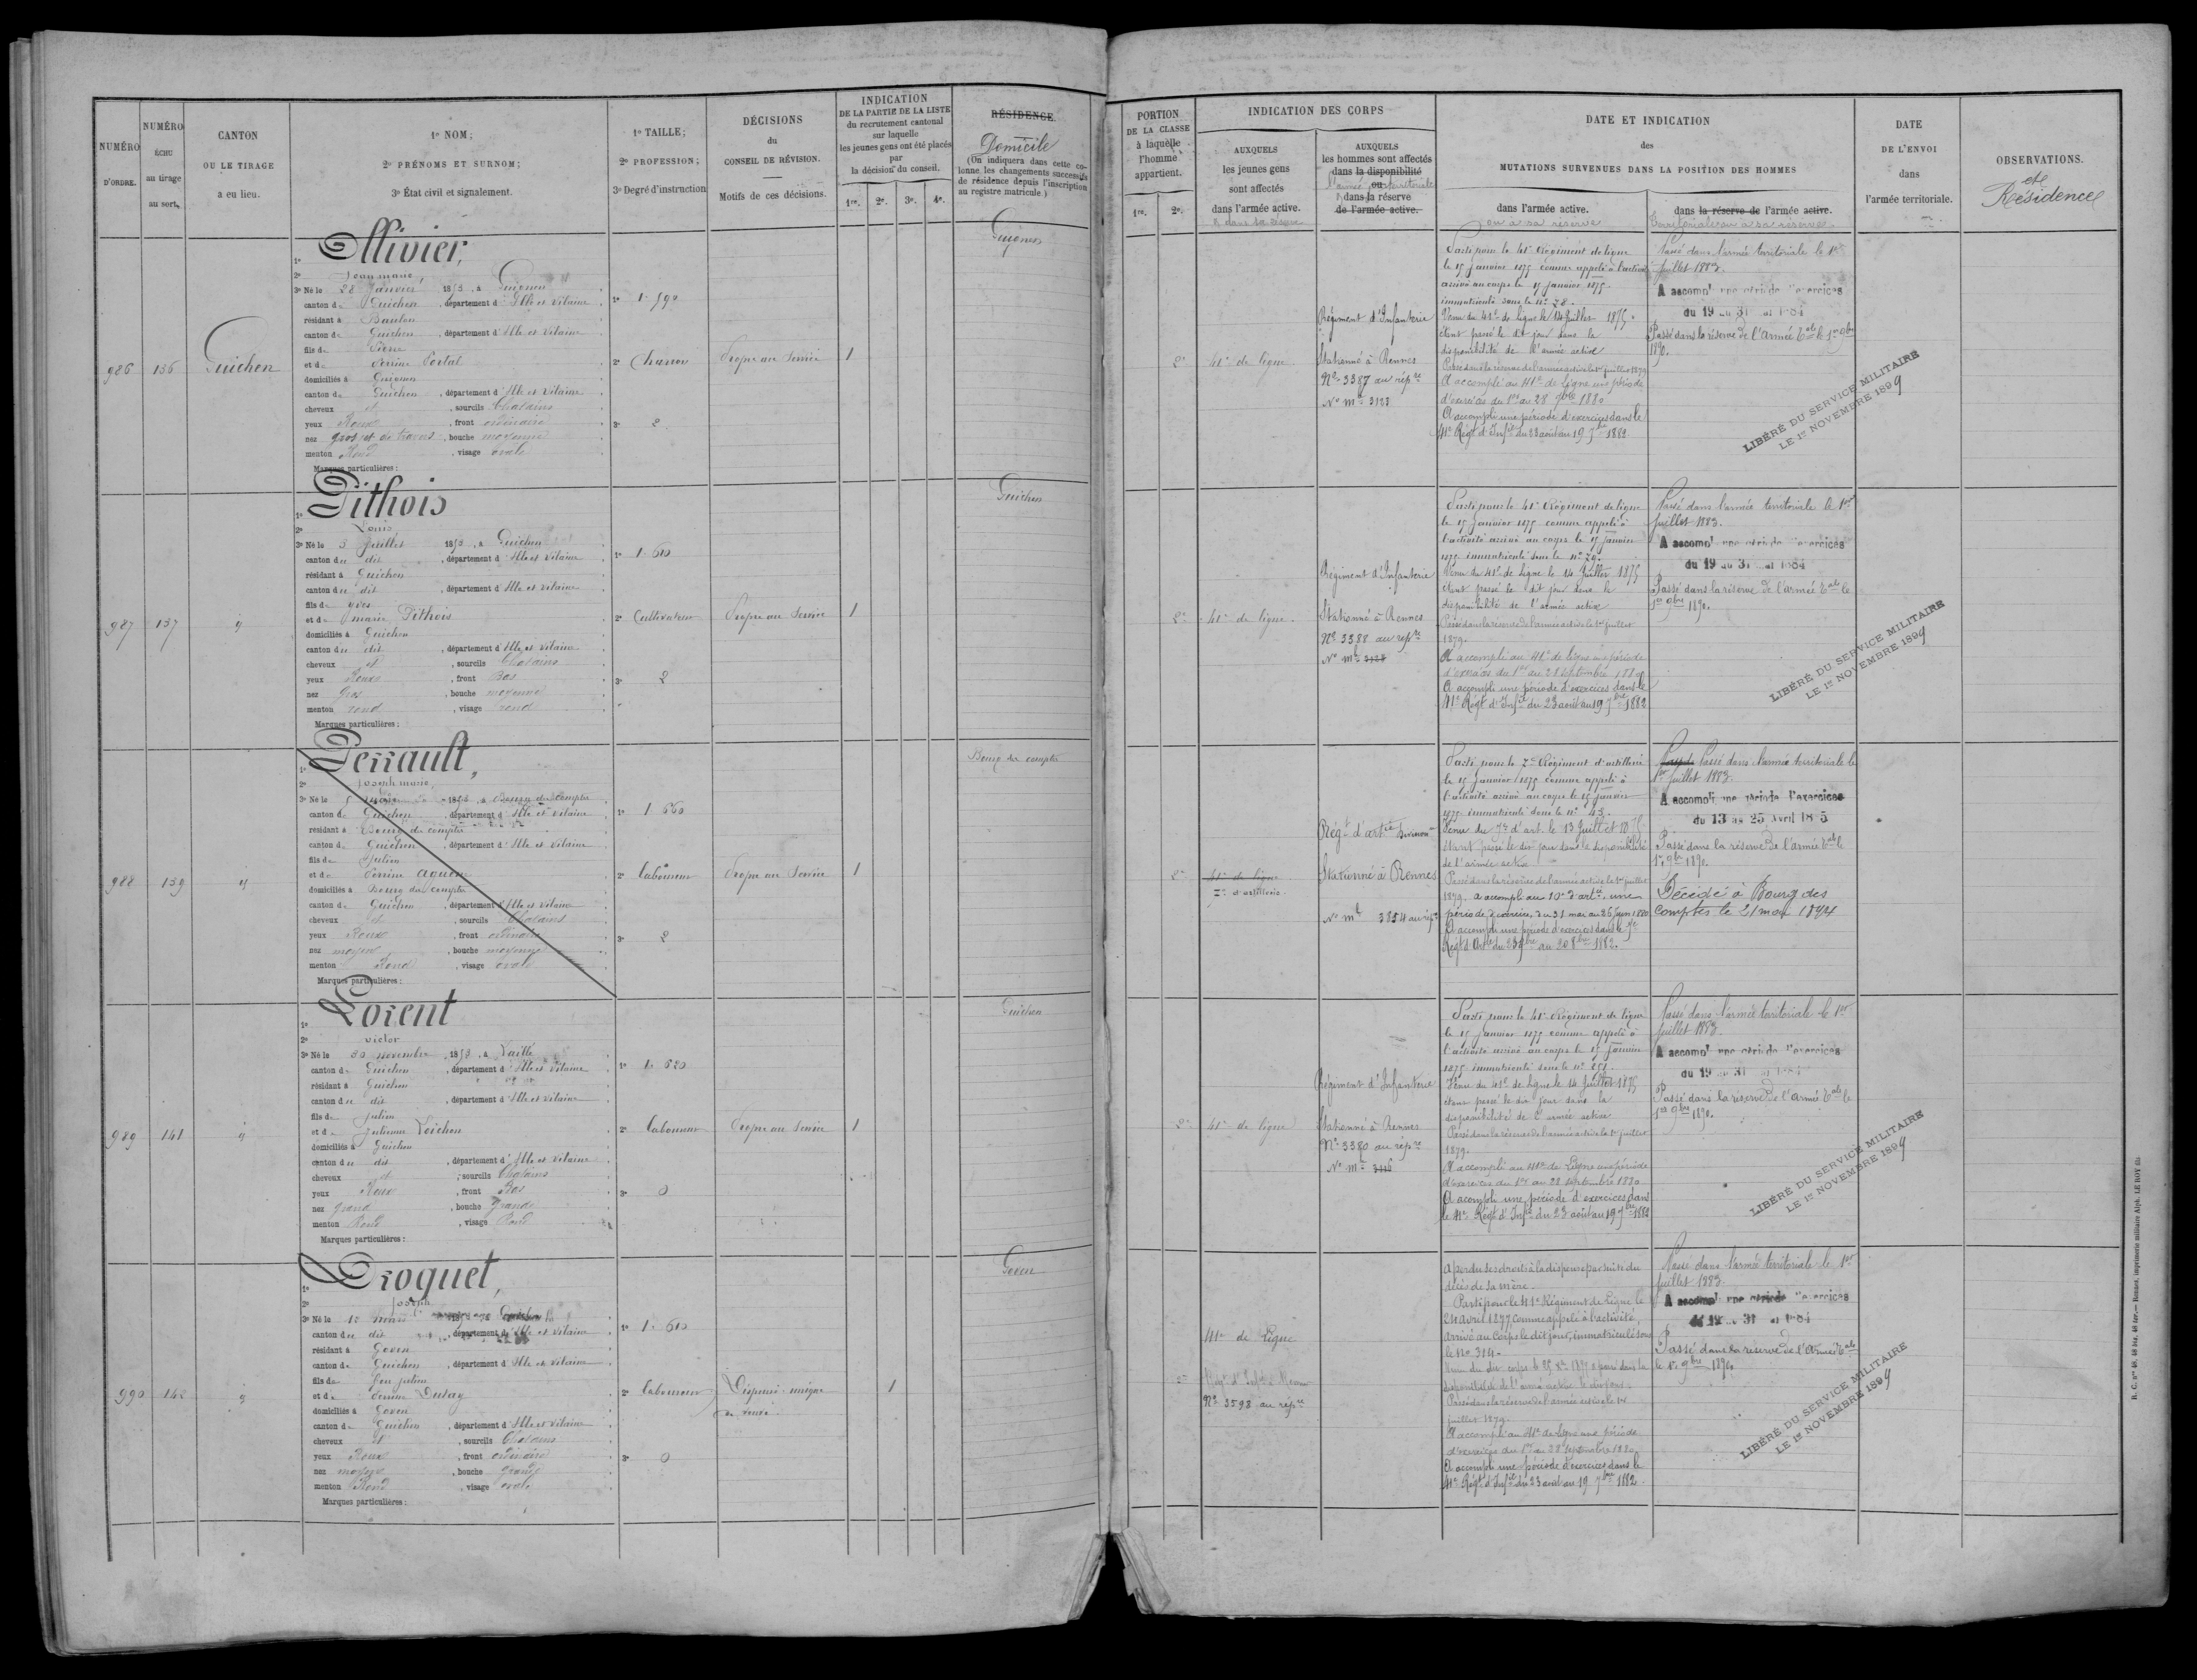 NUMÉRO
D'ORDRE.
NUMÉRO
ÉCHU
au tirage
au sort.
CANTON
OU LE TIRAGE
a eu lieu.
1º NOM;
2º PRÉNOMS ET SURNOM;
3º État civil et signalement.
1º TAILLE;
2º PROFESSION;
3º Degré d'instruction
DÉCISIONS
du
CONSEIL DE RÉVISION.
Motifs de ces décisions.
INDICATION
DE LA PARTIE DE LA LISTE
du recrutement cantonal
sur laquelle
les jeunes gens ont été placés
par
la décision du conseil.
1re. 2e. 3e. 4e.
RÉSIDENCE
Domicile
(On indiquera dans cette co-
lonne les changements successifs
de résidence depuis l'inscription
au registre matricule)
PORTION
DE LA CLASSE
à laquelle
l'homme
appartient.
1re. 2e.
INDICATION DES CORPS
AUXQUELS
les jeunes gens
sont affectés
dans l'armée active.
& dans sa réserve
AUXQUELS
les hommes sont affectés
dans la disponibilité
ou
dans la réserve
de l'armée active.
DATE ET INDICATION
des
MUTATIONS SURVENUES DANS LA POSITION DES HOMMES
dans l'armée active.
ou à sa réserve
dans la réserve de l'armée active.
Territoriale ou à sa réserve
DATE
DE L'ENVOI
dans
l'armée territoriale.
OBSERVATIONS.
et
Résidence
986 136 Guichen
1º Ollivier,
2º Jean marie,
3º Né le 28 Janvier 1853, à Guignen
canton de Guichen, département d'Ille et Vilaine
résidant à Baulon
canton de Guichen, département d'Ille et Vilaine
fils de Pierre
et de Perrine Portal
domiciliés à Guignen
canton de Guichen, département d'Ille et Vilaine
cheveux et, sourcils Chatains
yeux Roux, front ordinaire
nez gros et de travers, bouche moyenne
menton Rond, visage ovale
Marques particulières:
1º 1.590
2º Charron
3º 2
Propre au Service 1
Guignen
2e 41e de ligne
Régiment d'Infanterie
Stationné à Rennes
Nº 3387 au répre
Nº mle 3123
Parti pour le 41e Régiment de ligne
le 15 Janvier 1875 comme appelé à l'activité
arrivé au corps le 15 Janvier 1875.
immatriculé sous le nº 78.
Venu du 41e de ligne le 14 Juillet 1875
étant passé le dit jour dans la
disponibilité de l'armée active
Passé dans la réserve de l'armée active le 1er juillet 1879
A accompli au 41e de Ligne une période
d'exercices du 1er au 28 7bre 1880
A accompli une période d'exercices dans le
41e Régt d'Infie du 23 août au 19 7bre 1882.
Passé dans l'armée territoriale le 1er
Juillet 1883.
A accompli une période d'exercices
du 19 au 31 mai 1884
Passé dans la réserve de l'Armée Tale le 1er 9bre
1890.
LIBÉRÉ DU SERVICE MILITAIRE
LE 1er NOVEMBRE 1899
987 137 "
1º Pithois
2º Louis
3º Né le 3 Juillet 1853, à Guichen
canton du dit, département d'Ille et Vilaine
résidant à Guichen
canton du dit, département d'Ille et Vilaine
fils de yves
et de marie Pithois
domiciliés à Guichen
canton du dit, département d'Ille et Vilaine
cheveux et, sourcils Chatains
yeux Roux, front Bas
nez Gros, bouche moyenne
menton rond, visage rond
Marques particulières:
1º 1.610
2º Cultivateur
3º 2
Propre au Service 1
Guichen
2e 41e de ligne.
Régiment d'Infanterie
Stationné à Rennes
Nº 3388 au répre
Nº mle 3124
Parti pour le 41e Régiment de ligne
le 15 Janvier 1875 comme appelé à
l'activité arrivé au corps le 15 Janvier
1875 immatriculé sous le nº 79.
Venu du 41e de ligne le 14 Juillet 1875
étant passé le dit jour dans la
disponibilité de l'armée active
Passé dans la réserve de l'armée active le 1er juillet
1879.
A accompli au 41e de ligne une période
d'exercices du 1er au 28 septembre 1880
A accompli une période d'exercices dans le
41e Régt d'Infie du 23 août au 19 7bre 1882
Passé dans l'armée territoriale le 1er
Juillet 1883.
A accompli une période d'exercices
du 19 au 31 mai 1884
Passé dans la réserve de l'armée Tale le
1er 9bre 1890.
LIBÉRÉ DU SERVICE MILITAIRE
LE 1er NOVEMBRE 1899
988 139 "
1º Perrault,
2º Joseph marie,
3º Né le 5, à Bourg des Comptes
canton de Guichen, département d'Ille et Vilaine
résidant à Bourg des comptes
canton de Guichen, département d'Ille et Vilaine
fils de Julien
et de Perrine
domiciliés à Bourg des Comptes
canton de Guichen, département d'Ille et Vilaine
cheveux et, sourcils Chatains
yeux Roux, front ordinaire
nez moyen, bouche moyenne
menton Rond, visage ovale
Marques particulières:
1º 1.660
2º Laboureur
3º 2
Propre au Service 1
Bourg des comptes
2e 41e de ligne
7e d'artillerie.
Régt d'artie
Stationné à Rennes
Nº mle 3854 au répre
Parti pour le 7e Régiment d'artillerie
le 15 Janvier 1875 comme appelé à
l'activité arrivé au corps le 15 Janvier
1875 immatriculé sous le nº 43.
Venu du 7e d'art. le 13 Juillet 1875
étant passé le dit jour dans la disponibilité
de l'armée active
Passé dans la réserve de l'armée active le 1er juillet
1879. a accompli au 10e d'artie une
période d'exercices du 31 mai au 26 Juin 1880
A accompli une période d'exercices dans le 7e
Régt d'Artie du 23 7bre au 20 8bre 1882.
Passé dans l'armée territoriale le
1er Juillet 1883.
A accompli une période d'exercices
du 13 au 25 Avril 1885
Passé dans la réserve de l'armée Tale le
1er 9bre 1890.
Décédé à Bourg des
Comptes le 21 mai 1894
989 141 "
1º Lorent
2º victor
3º Né le 30 novembre 1853, à Laillé
canton de Guichen, département d'Ille et Vilaine
résidant à Guichen
canton du dit, département d'Ille et Vilaine
fils de Julien
et de Julienne Loichon
domiciliés à Guichen
canton du dit, département d'Ille et Vilaine
cheveux et, sourcils Chatains
yeux Roux, front Bas
nez grand, bouche Grande
menton Rond, visage Rond
Marques particulières:
1º 1.620
2º Laboureur
3º 0
Propre au Service 1
Guichen
2e 41e de ligne
Régiment d'Infanterie
Stationné à Rennes
Nº 3380 au répre
Nº mle 3116
Parti pour le 41e Régiment de ligne
le 15 Janvier 1875 comme appelé à
l'activité arrivé au corps le 15 Janvier
1875 immatriculé sous le nº 851.
Venu du 41e de Ligne le 14 Juillet 1875
étant passé le dit jour dans la
disponibilité de l'armée active
Passé dans la réserve de l'armée active le 1er juillet
1879.
A accompli au 41e de Ligne une période
d'exercices du 1er au 28 septembre 1880
A acompli une période d'exercices dans
le 41e Régt d'Infie du 23 août au 19 7bre 1882
Passé dans l'armée territoriale le 1er
Juillet 1883.
A accompli une période d'exercices
du 19 au 31 mai 1884
Passé dans la réserve de l'armée Tale le
1er 9bre 1890.
LIBÉRÉ DU SERVICE MILITAIRE
LE 1er NOVEMBRE 1899
990 142 "
1º Croquet,
2º Joseph
3º Né le
canton du dit, département d'Ille et Vilaine
résidant à Goven
canton de Guichen, département d'Ille et Vilaine
fils de feu Julien
et de Perrine
domiciliés à Goven
canton de Guichen, département d'Ille et Vilaine
cheveux et, sourcils Chatains
yeux Roux, front ordinaire
nez moyen, bouche grande
menton Rond, visage ovale
Marques particulières:
1º 1.610
2º Laboureur
3º 0
Dispensé unique
de veuve 1
Goven
41e de Ligne
Nº 3598 au répre
a perdu ses droits à la dispense par suite du
décès de sa mère.
Parti pour le 41e Régiment de Ligne le
24 avril 1877, comme appelé à l'activité,
arrivé au Corps le dit jour, immatriculé sous
le No 314.
Passé dans la réserve de l'armée active le 1er
juillet 1879.
A accompli au 41e de ligne une période
d'exercices du 1er au 28 Septembre 1880
A accompli une période d'exercices dans le
41e Régt d'Infie du 23 août au 19 7bre 1882.
Passé dans l'armée territoriale le 1er
Juillet 1883.
A accompli une période d'exercices
du 19 au 31 mai 1884
Passé dans la réserve de l'Armée Tale
le 1er 9bre 1890
LIBÉRÉ DU SERVICE MILITAIRE
LE 1er NOVEMBRE 1899
Rennes, imprimerie militaire Alph. LE ROY fils